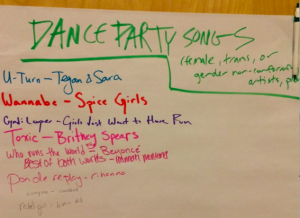 DANCE PARTY SONGS
(female, trans, or
gender non-conforming
artists, pl
U-Turn - Tegan & Sara
Wannabe - Spice Girls
Cyndi Lauper - Girls Just Want to Have Fun
Toxic - Britney Spears
Who runs the world - Beyonce
Best of both worlds - Hannah Montana
Pon de replay - rihanna